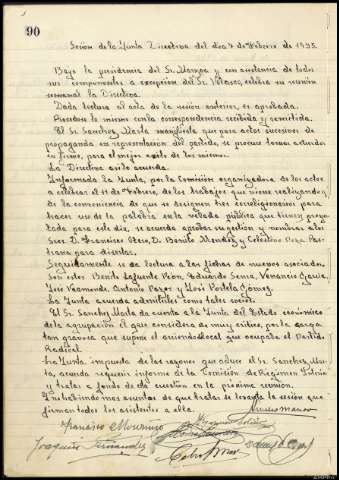 90
Sesión de la Junta Directiva del día 7 de Febrero de 1935.
Bajo la presidencia del Sr. y con asistencia de todos
sus componentes a excepción del Sr. Velasco, celebra su reunión
semanal la Directiva.
Dada lectura al acta de la sesión anterior, es aprobada.
lo mismo con la correspondencia recibida y remitida.
El Sr. Sanchez Marta manifiesta que para actos sucesivos de
propaganda en representación del partido, se procure tomar
en firme, para el mejor exito de los mismos.
La Directiva asi lo acuerda.
Informada la Junta, por la Comisión organizadora de los actos
a celebrar el 11 de Febrero, de los trabajos que viene realizando y
de la conveniencia de que se designen tres correligionarios para
hacer uso de la palabra en la velada pública que tienen proyec-
tada para este dia, se acuerda aprobar su gestión y nombrar a los
Sres. D. Francisco Otero, D. Benito Mendez y Celestino Poza Pas-
trana para
Seguidamente se da lectura a las fichas de nuevos asociados,
Son estos Benito Lafuente León, Eduardo Senra, Venancio
José Antonio Pazos y José Portela Gómez.
La Junta acuerda admitirles como tales socios.
El Sr. Sanchez Marta da cuenta a la Junta del Estado económico
de la agrupación el que considera de muy critico, por la carga
tan gravosa que supone el arriendo del local que ocupaba el Partido
Radical.
La Junta, impuesta de las razones que aduce el Sr. Sanchez Mar-
ta, acuerda requerir informe de la Comisión de Régimen Interior
y tratar a fondo de la cuestión en la próxima reunión.
Y no habiendo mas asuntos de que tratar se levanta la sesión que
firman todos los asistentes a ella.
Francisco
Joaquin Fernández